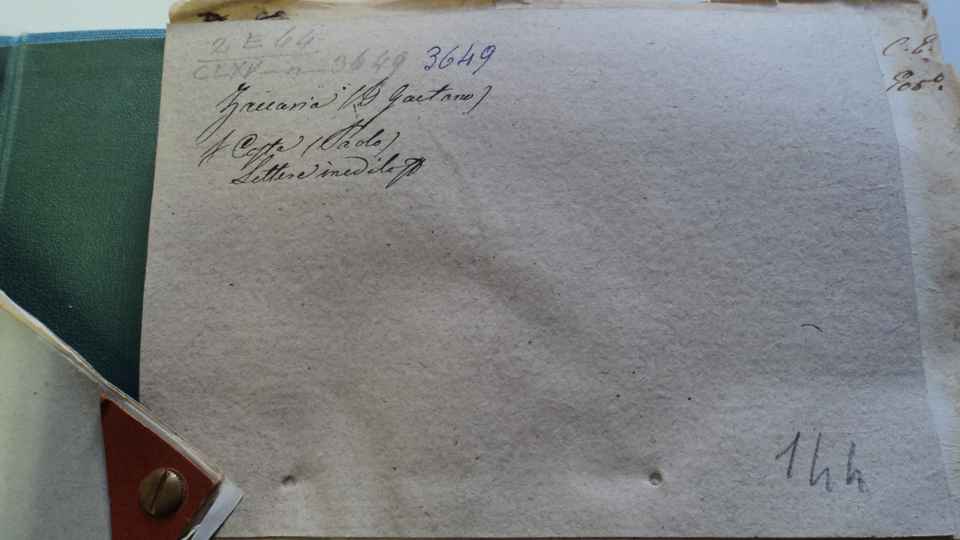 2 E 44
CLXV n 3649 3649
Zaccaria (D Gaetano)
A Costa (Paolo)
Lettere inedite
C. E.
144